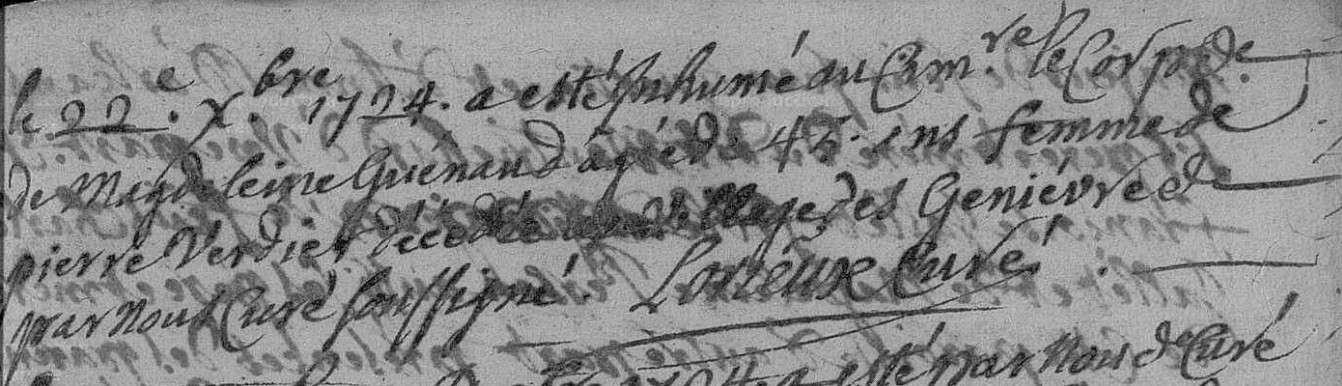 le 22.e x.bre 1724. a esté Inhumé au Cim.re le Corps de
de Magdeleine Guenaud agéé de 45. ans femme de
pierre Verdier décédéé au Village des Geniévre de
par Nous Curé soussigné. Lorieux Curé
esté par Nous d. Curé